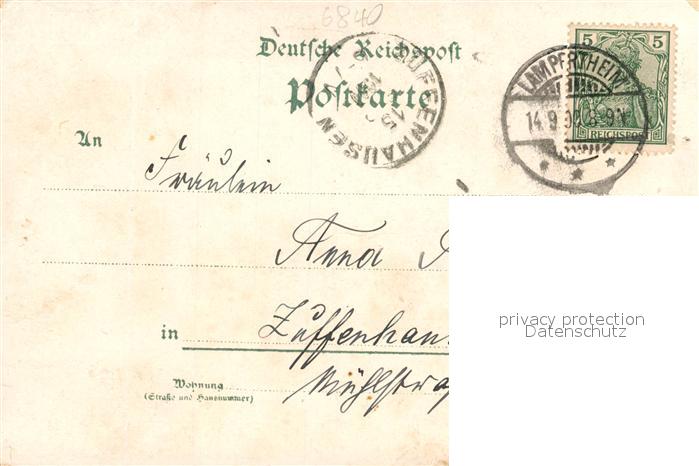 6840
Deutsche Reichspost
Postkarte
5 5
REICHSPOST
LAMPERTHEIM
14.9.02.8-9V.
ZUFFENHAUSEN
An
Fräulein
Anna
in Zuffenhau
Mühlstra
Wohnung
(Straße und Hausnummer)
privacy protection
Datenschutz